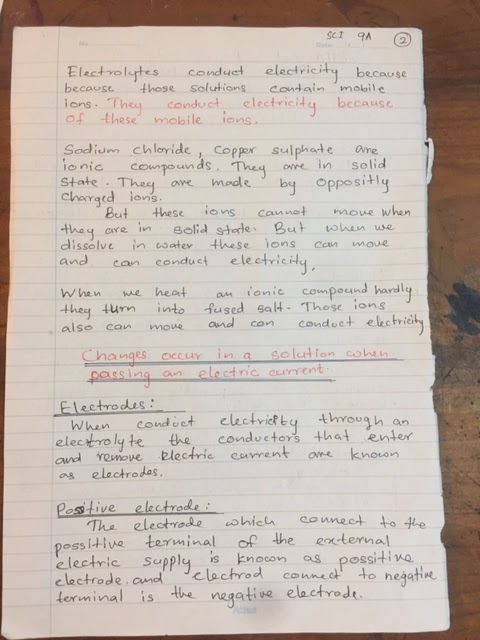 SCI 9A 2
Electrolytes conduct electricity because
because those solutions contain mobile
ions. They conduct electricity because
of these mobile ions.
Sodium chloride, Copper sulphate are
ionic compounds. They are in solid
State. They are made by oppositly
charged ions.
But these ions cannot move when
they are in solid state. But when we
dissolve in water these ions can move
and can conduct electricity.
When we heat an ionic compound hardly
they turn into fused salt. Those ions
also can move and can conduct electricity
Changes occur in a solution when
passing an electric current.
Electrodes:
When conduct electricity through an
electrolyte the conductors that enter
and remove electric current are known
as electrodes.
Possitive electrode:
The electrode which connect to the
possitive terminal of the external
electric supply is known as possitive
electrode. and electrod connect to negative
terminal is the negative electrode.